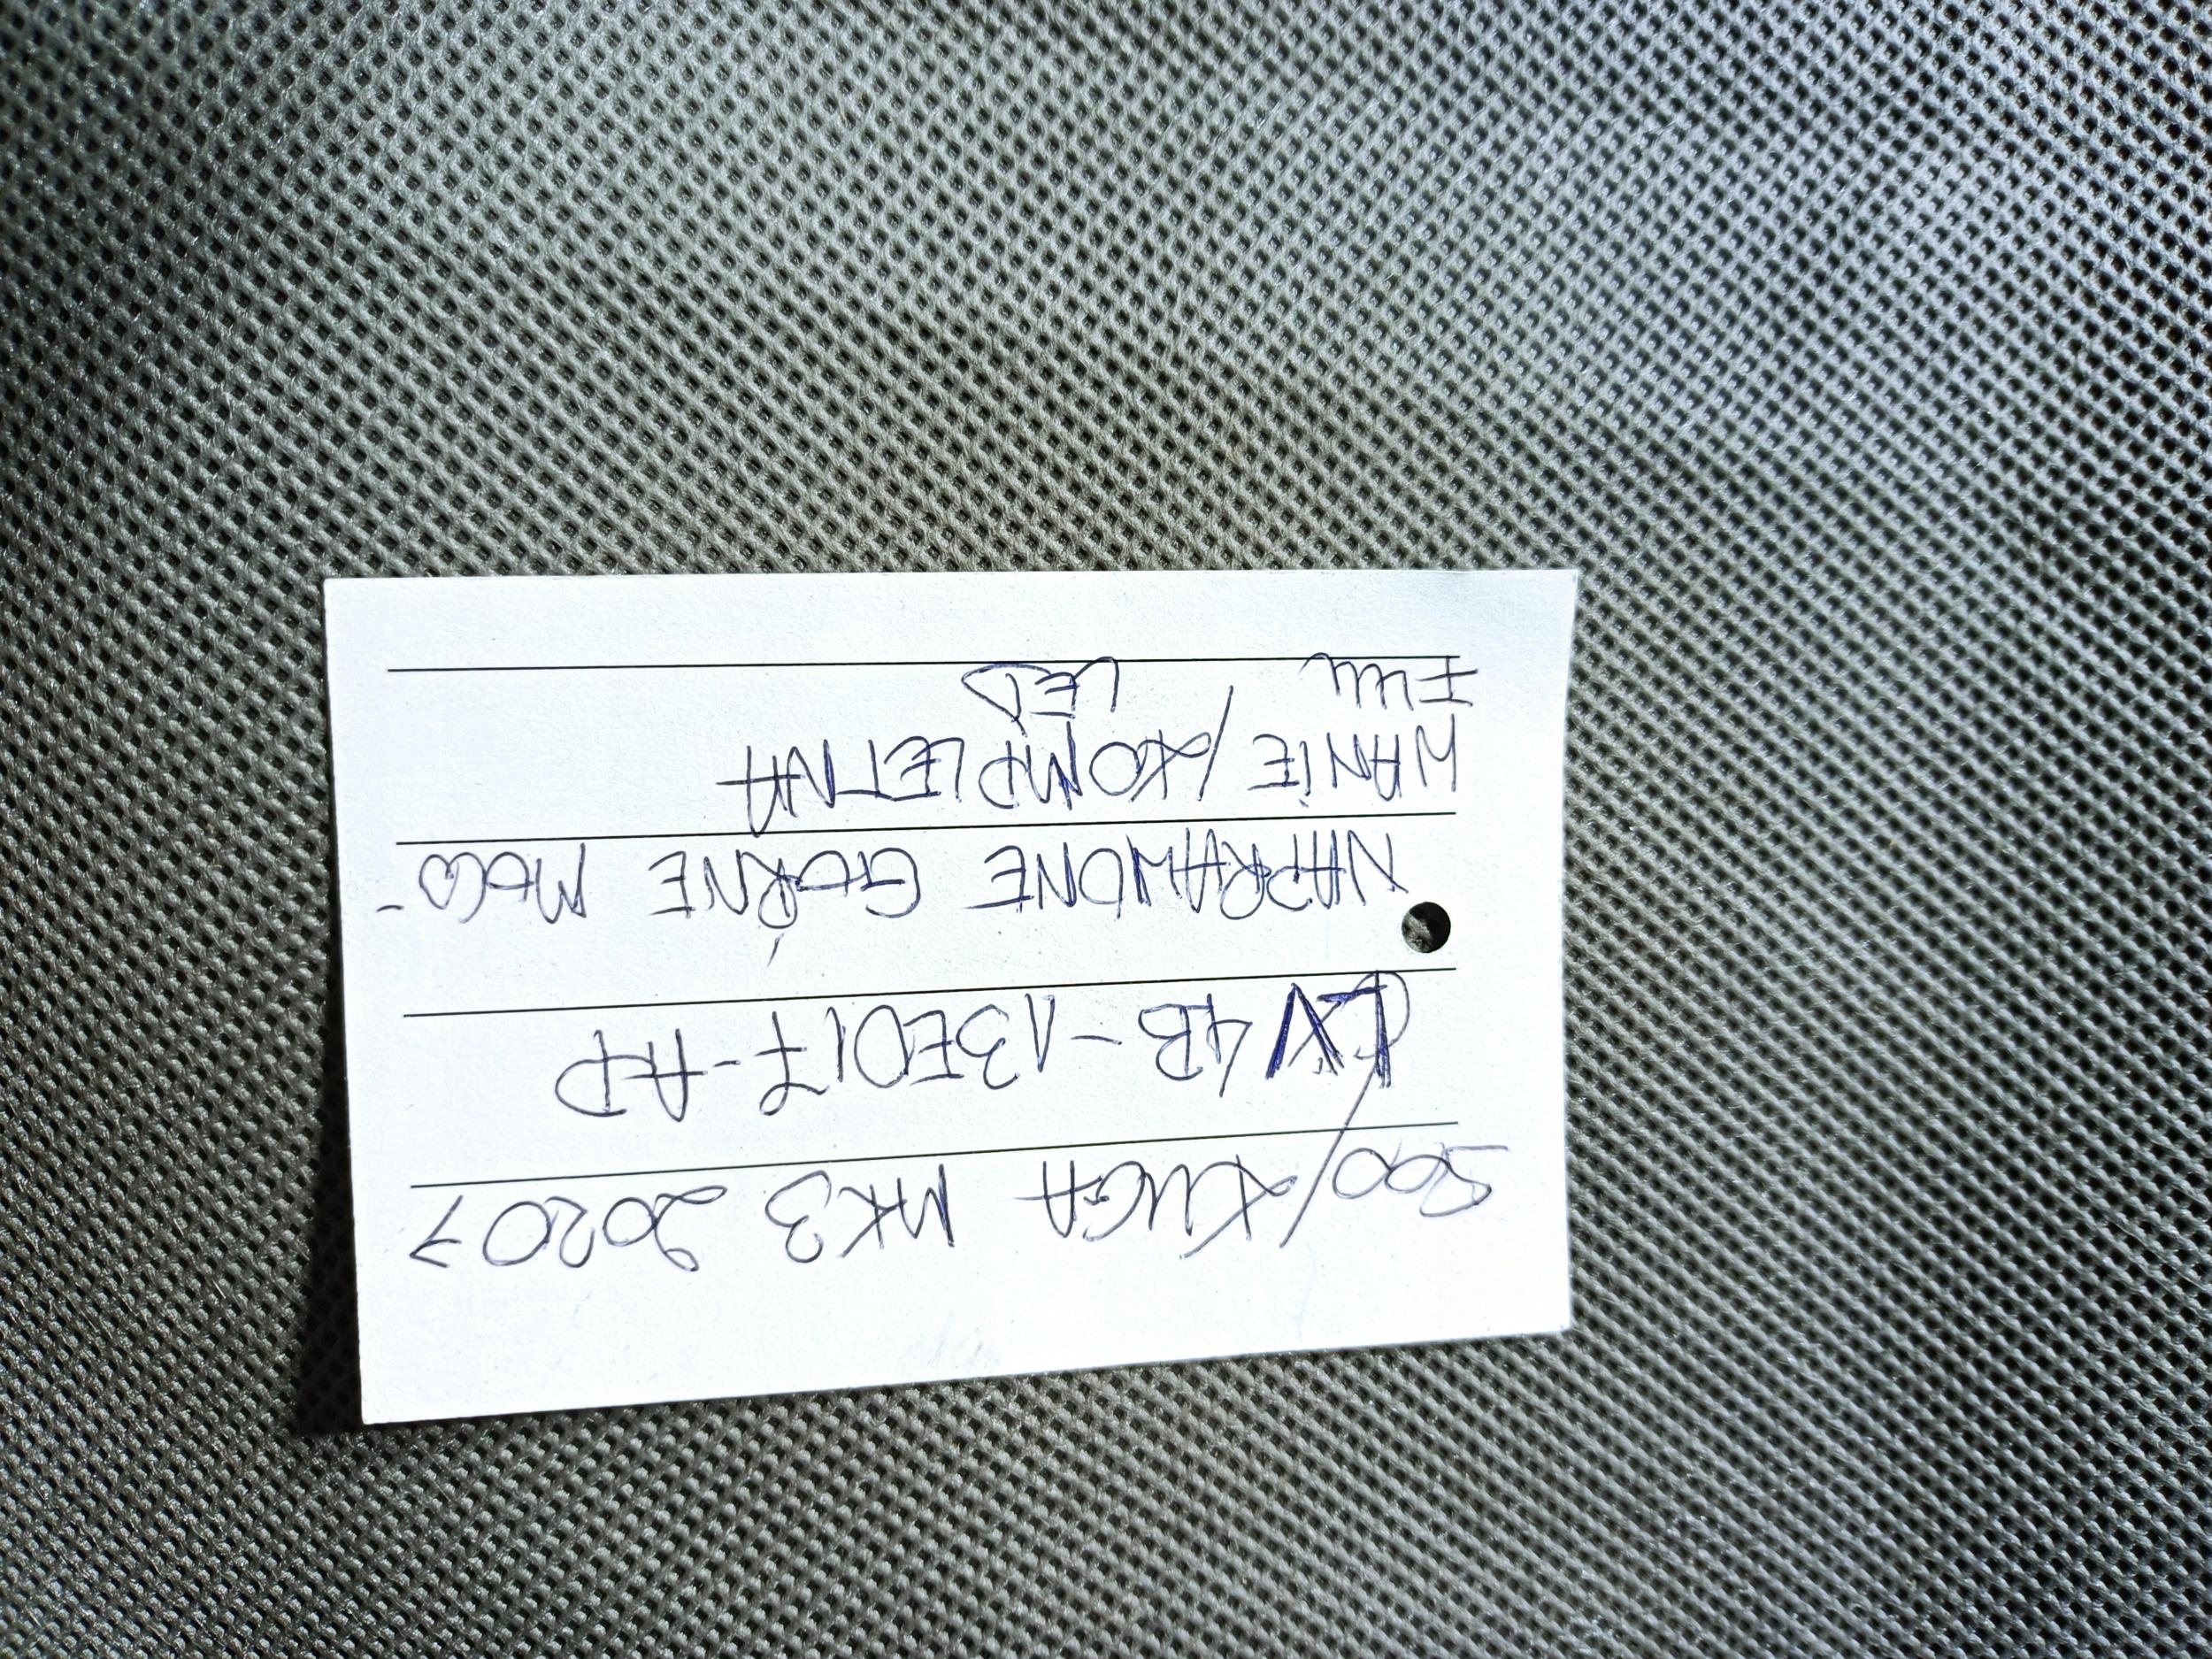 500/KUGA MK3 2020>
LV4B-13E017-AP
NAPRAWIONE GÓRNE MOCO-
WANIE/KOMPLETNA
FULL LED